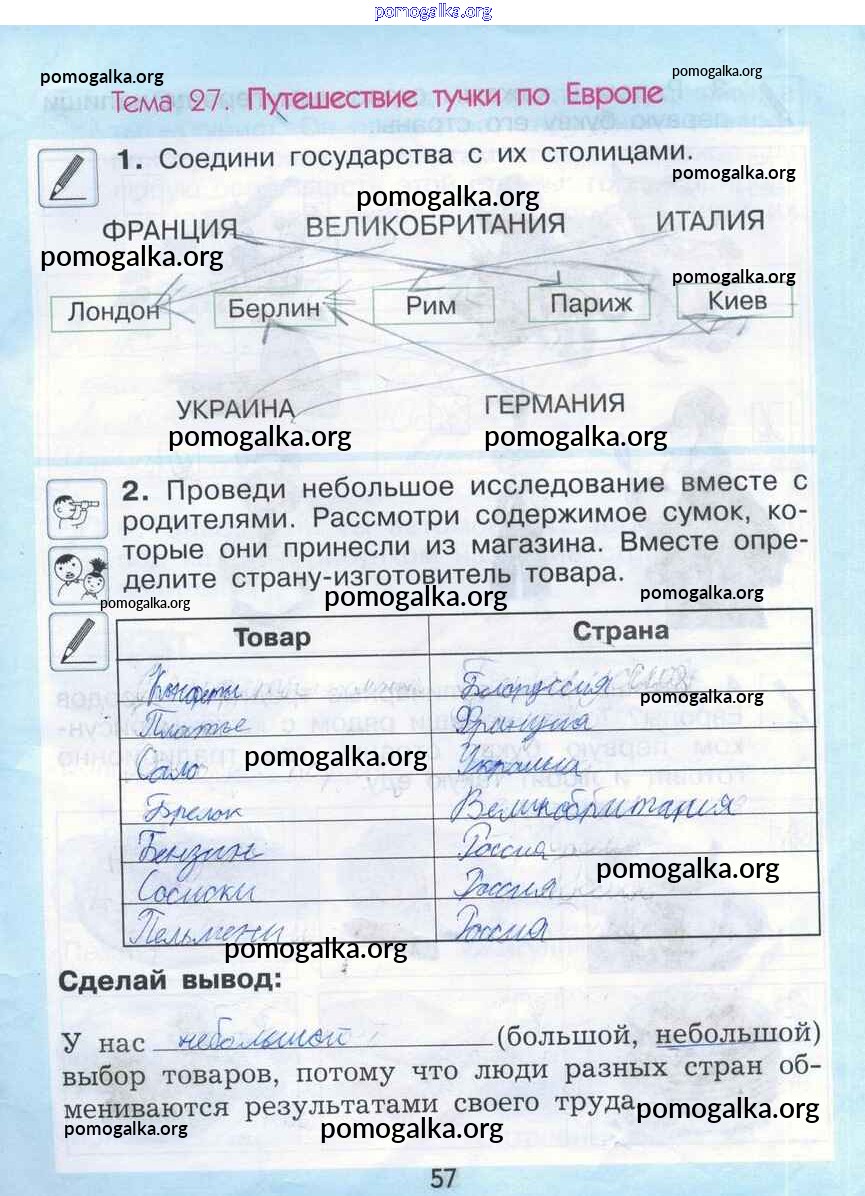 pomogalka.org
pomogalka.org
pomogalka.org
Тема 27. Путешествие тучки по Европе
1. Соедини государства с их столицами.
pomogalka.org
pomogalka.org
ФРАНЦИЯ ВЕЛИКОБРИТАНИЯ ИТАЛИЯ
pomogalka.org
pomogalka.org
Лондон Берлин Рим Париж Киев
УКРАИНА ГЕРМАНИЯ
pomogalka.org pomogalka.org
2. Проведи небольшое исследование вместе с
родителями. Рассмотри содержимое сумок, ко-
торые они принесли из магазина. Вместе опре-
делите страну-изготовитель товара.
pomogalka.org pomogalka.org pomogalka.org
Товар Страна
Конфеты Белоруссия
pomogalka.org
Платье Франция
pomogalka.org
Сало Украина
Брелок Великобритания
Бензин Россия
pomogalka.org
Сосиски Россия
Пельмени Россия
pomogalka.org
pomogalka.org
Сделай вывод:
У нас небольшой (большой, небольшой)
выбор товаров, потому что люди разных стран об-
мениваются результатами своего труда
pomogalka.org
pomogalka.org pomogalka.org pomogalka.org
57